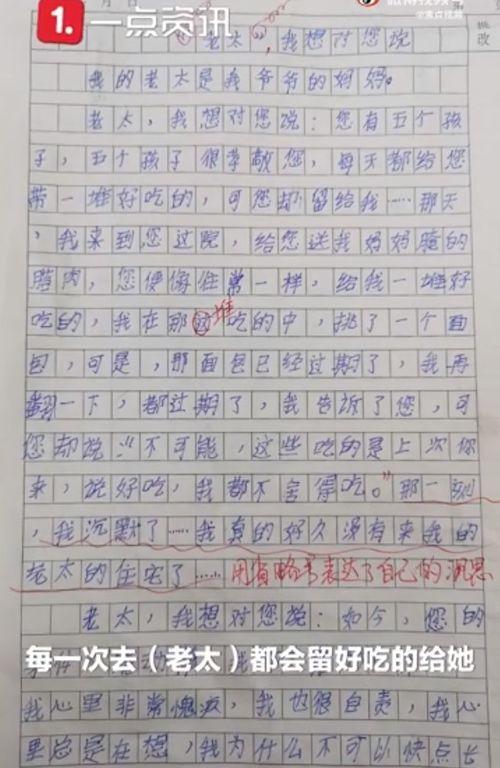 1. 一点资讯
“老太”,我想对您说
批改
我的老太是我爷爷的妈妈。
老太，我想对您说：您有五个孩
子，五个孩子很孝敬您，每天都给您
带一堆好吃的，可您却留给我……那天
，我来到您过院，给您送我妈妈腌的
腊肉，您便像往常一样，给我一堆好
吃的，我在那堆吃的中，挑了一个面
包，可是，那面包已经过期了，我再
翻一下，都过期了，我告诉了您，可
您却说“不可能，这些吃的是上次你
来，说好吃，我都不舍得吃。”那一刻
，我沉默了……我真的好久没有来我的
老太的住宅了…… 用省略号表达了自己的沉思
老太，我想对您说：如今，您的
每一次去（老太）都会留好吃的给她
我心里非常愧疚，我也很自责，我心
里总是在想，我为什么不可以快点长